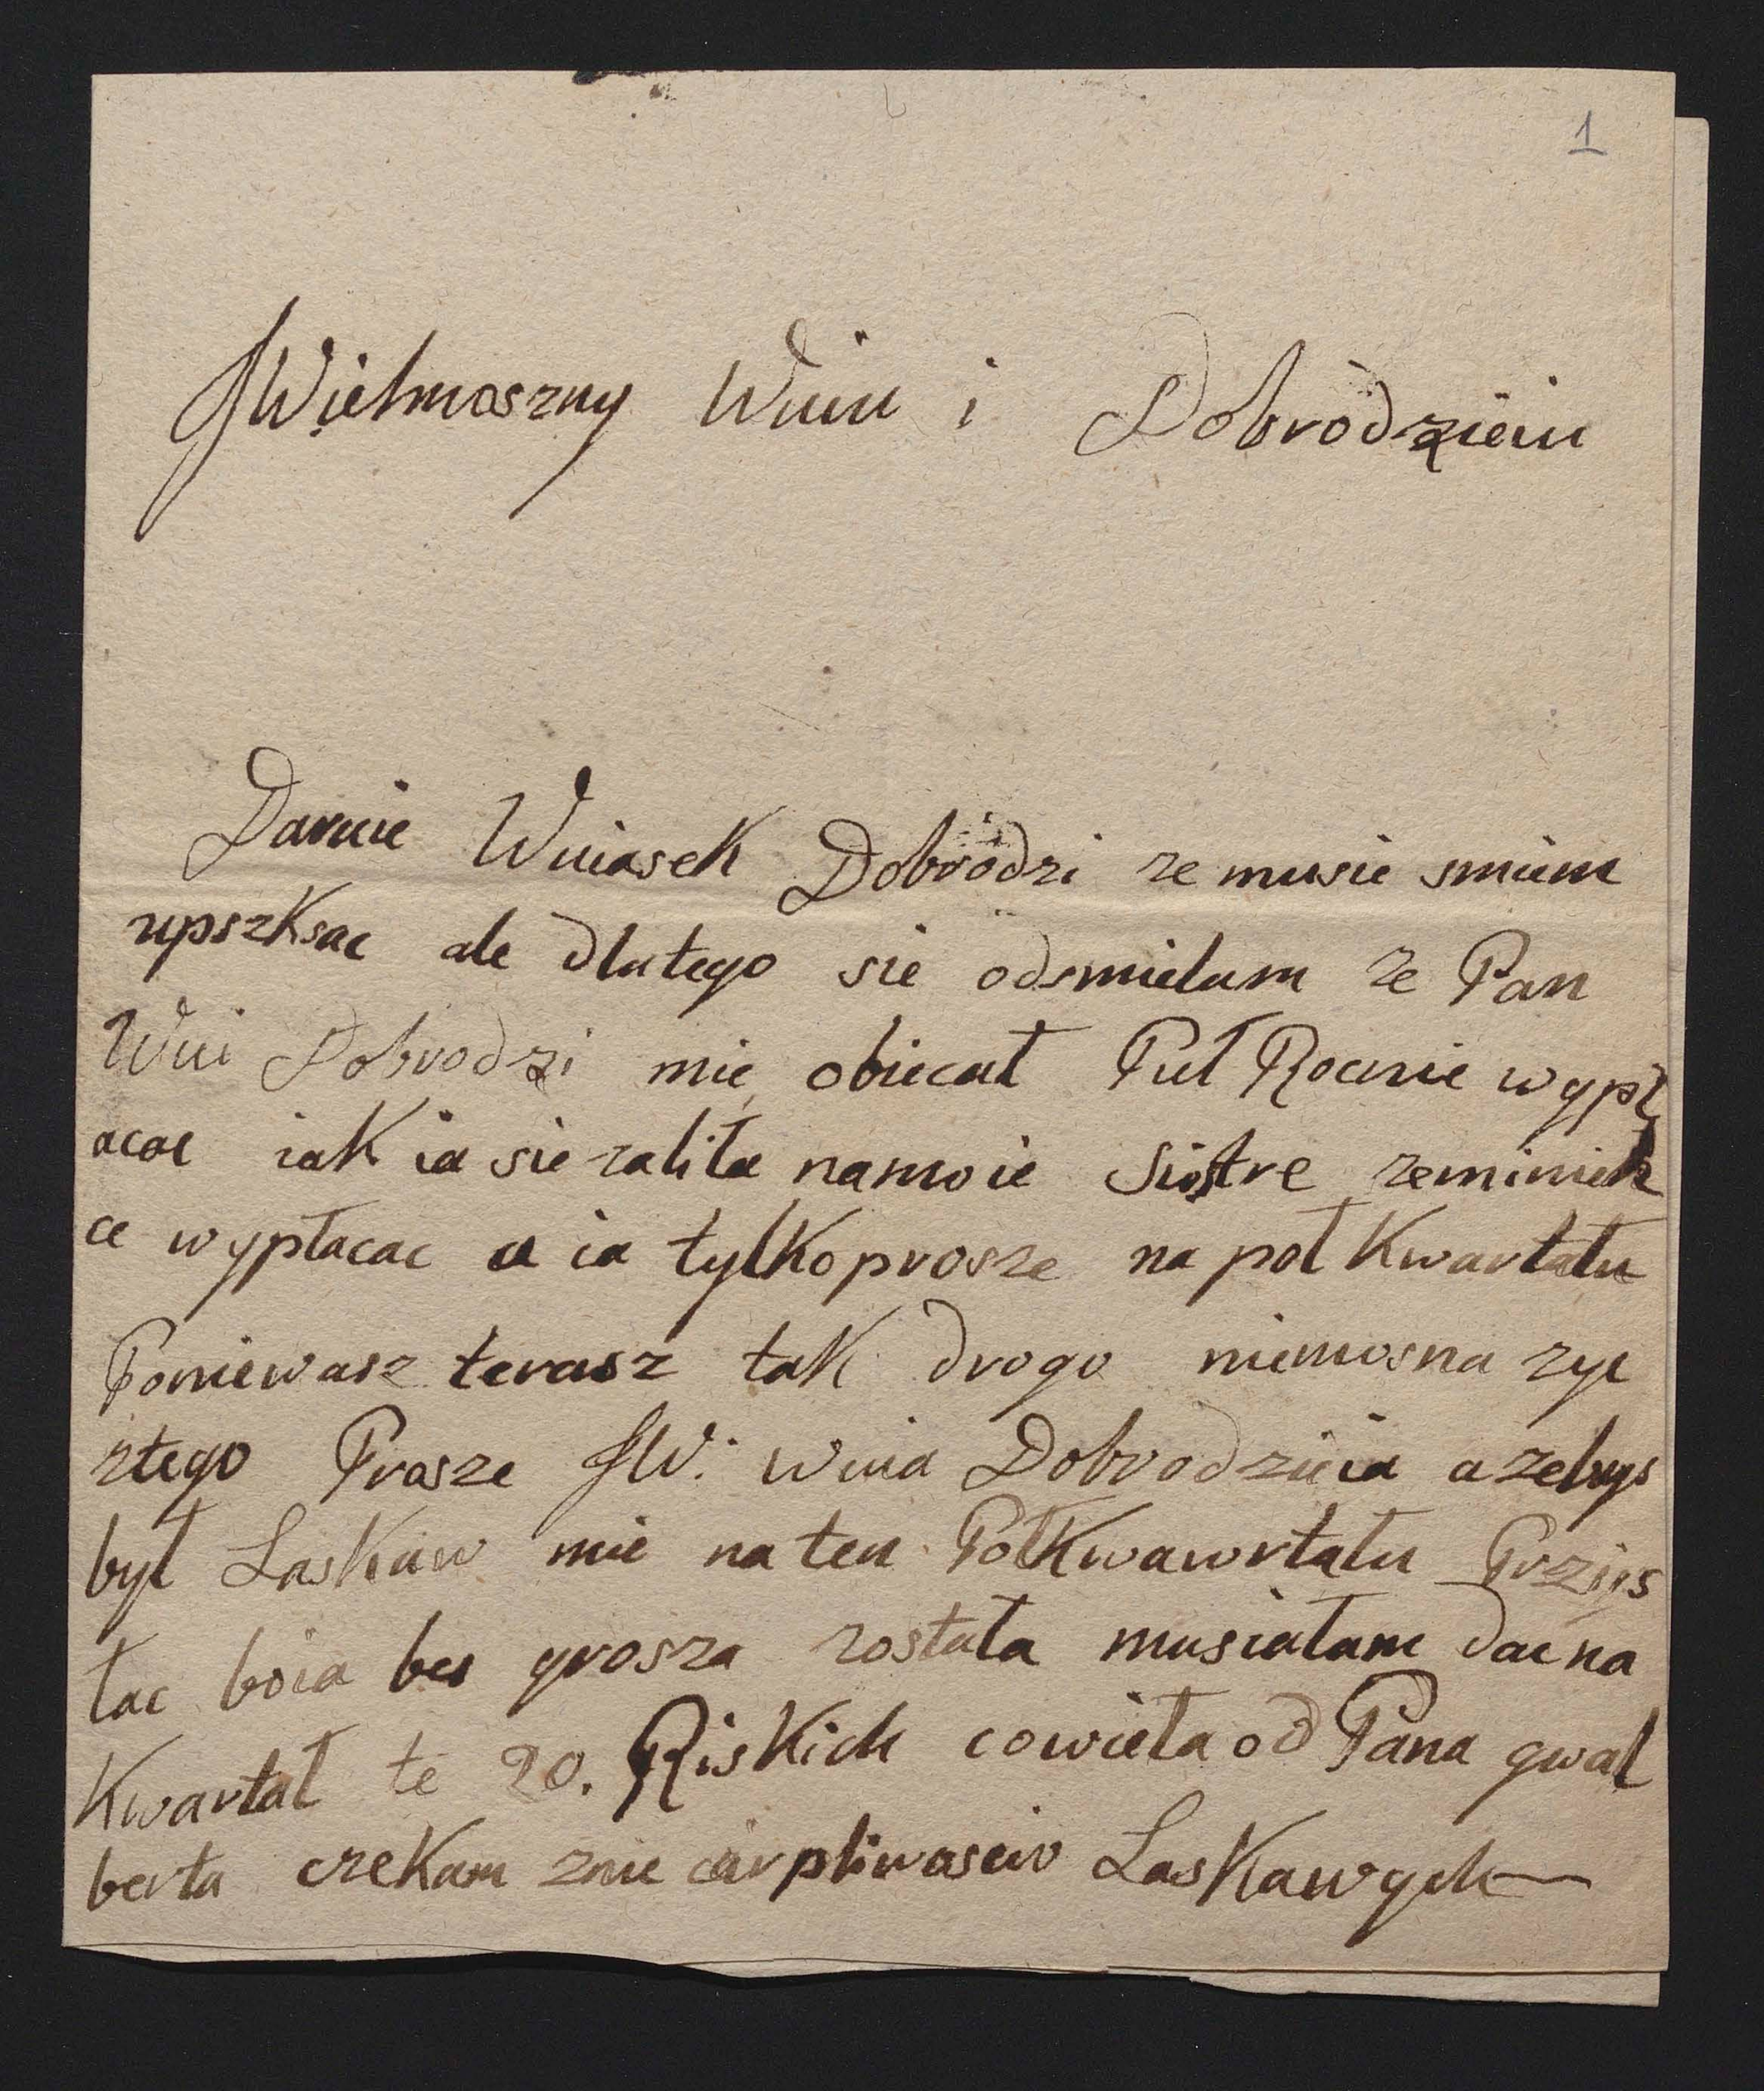 1
JWielmoszny Wuiu i Dobrodzieiu
Daruie Wuiasek Dobrodzi ze musie smiem
upszksac ale dlutego sie odsmielam ze Pan
Wui Dobrodzi mie obiecał Puł Rocnie wypł
acac iak ia sie zaliła namoie Siostre zeminieh
ce wypłacac a ia tylko prosze na poł Kwartału
Poniewasz terasz tak drogo niemosna zyc
ztego Prosze JW. Wuia Dobrodzieia azebys
był Laskaw mie na ten Połkwawrtału Przijs
łac boia bes grosza została musiałam dac na
Kwartał te 20. Riskich cowieła od Pana gwal
berta czekam znie cirpliwascio Laskawych